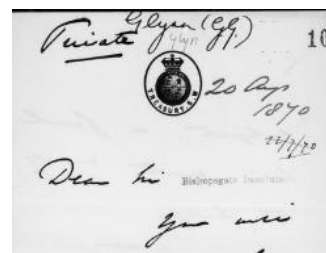 Glyn (GG.)
Private
Glyn
10
TREASURY. S.W
20 Aug
1870
22/7/70
Dear Sir
Bishopsgate Institute
You will